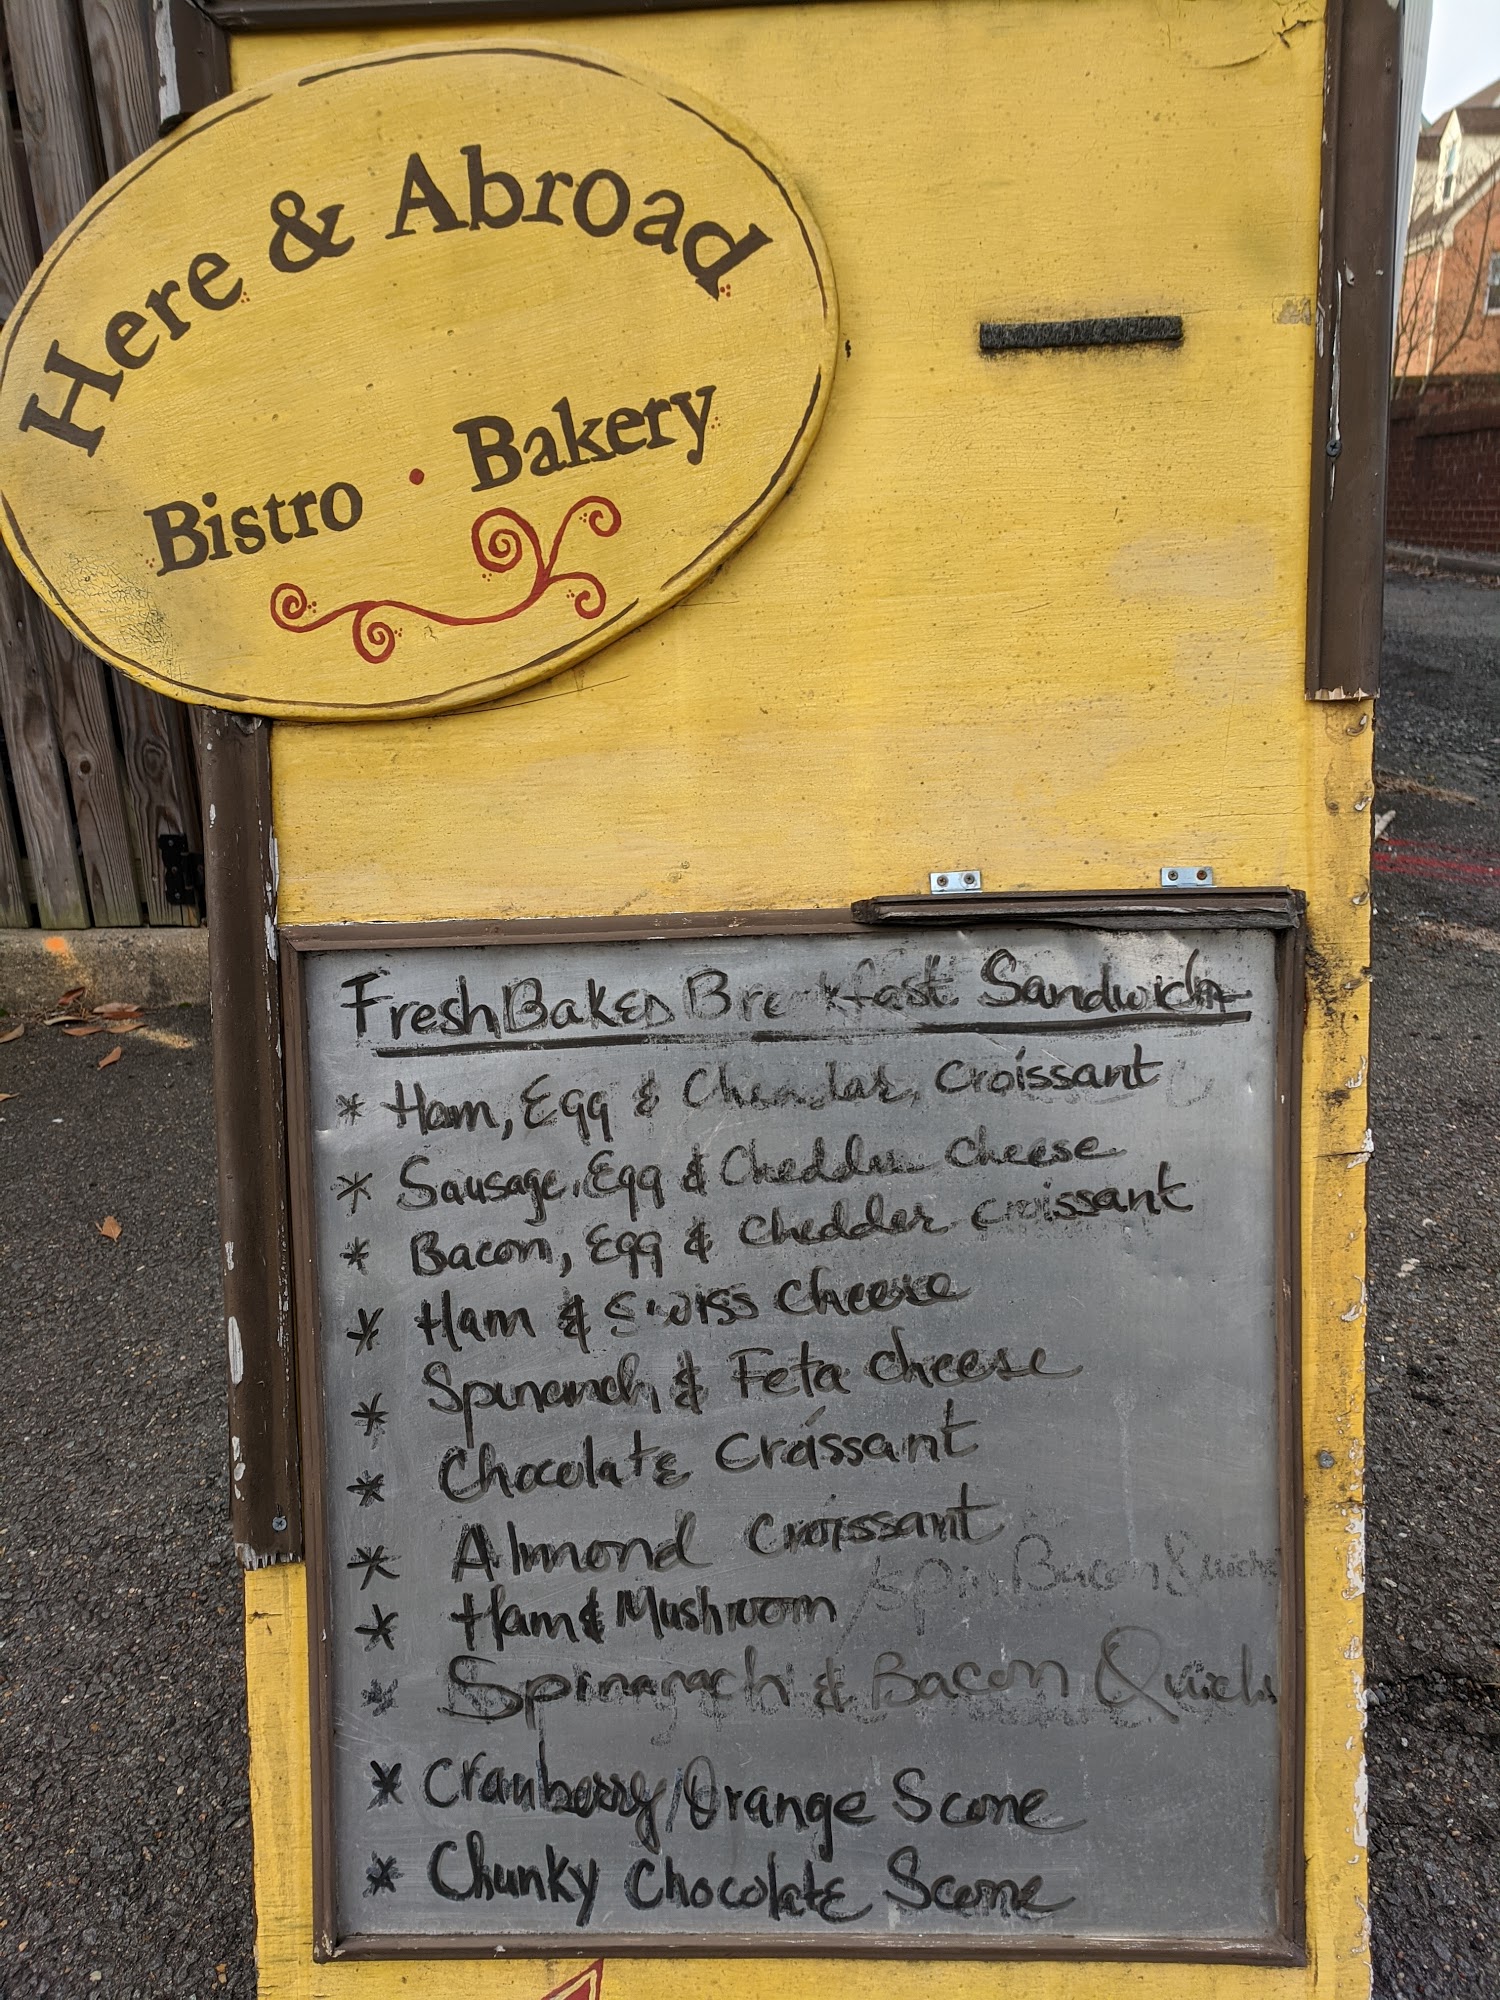 Here & Abroad
Bistro • Bakery
Fresh Baked Breakfast Sandwich
* Ham, Egg & Cheddar, croissant
* Sausage, Egg & Cheddar cheese
* Bacon, Egg & chedder croissant
* Ham & Swiss cheese
* Spinanch & Feta cheese
* Chocolate croissant
* Almond croissant
* Ham & Mushroom
Bacon
* Spinanach & Bacon Quich
* Cranberry/Orange Scone
* Chunky Chocolate Scone